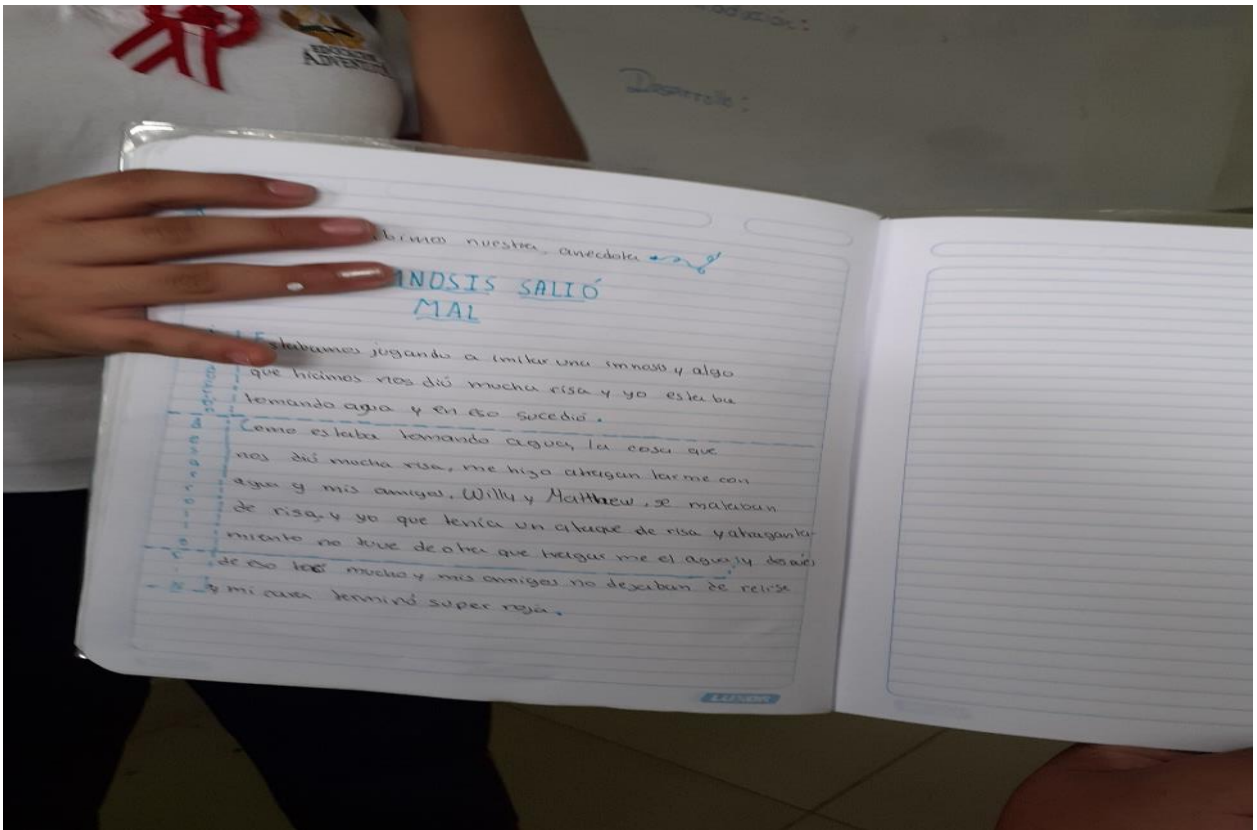 EDUCACIÓN
ADVENTISTA
Desarrollo:
bimos nuestra anecdota
NOSIS SALIÓ
MAL
Estabamos jugando a imitar una imnosis y algo
que hicimos nos dió mucha risa y yo estaba
tomando agua y en eso sucedió.
Como estaba tomando agua, la cosa que
nos dió mucha risa, me hizo atragantarme con
agua y mis amigos, Willy y Matthew, se mataban
de risa, y yo que tenía un ataque de risa y atraganta-
miento no tuve de otra que tragarme el agua, y
de eso tosí mucho y mis amigos no dejaban de reirse
y mi cara terminó super roja.
LUXOR